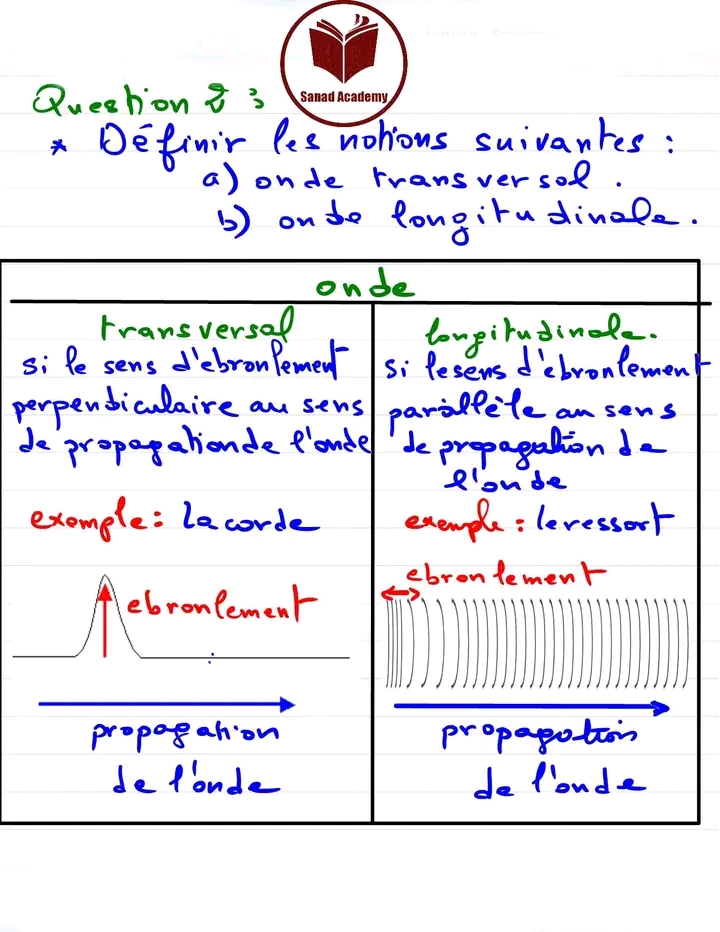 Sanad Academy
Question 2 :
* Définir les notions suivantes :
a) onde transversal .
b) onde longitudinale .
onde
transversal
si le sens d'ebronlement
perpendiculaire au sens
de propagationde l'onde
exemple : La corde
ebronlement
propagation
de l'onde
longitudinale.
si lesens d'ebronlement
parallèle au sens
de propagation de
l'onde
exemple : leressort
ebronlement
propagation
de l'onde